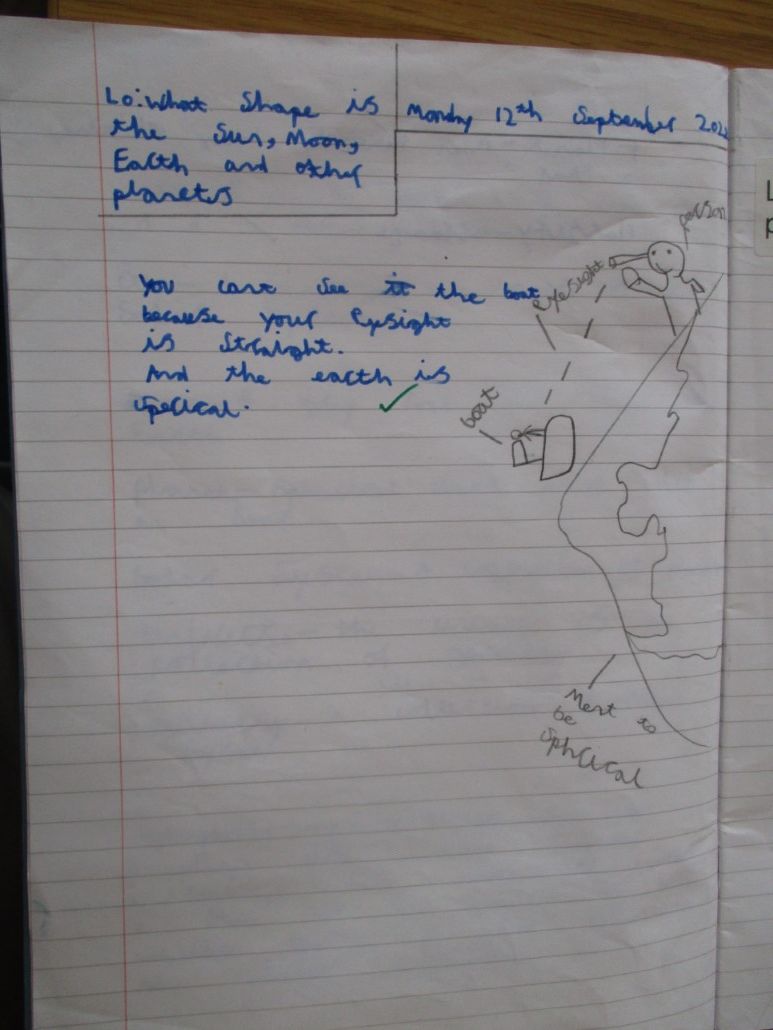 Lo: What Shape is
the Sun, Moon,
Earth and other
planets
Monday 12th September
You cant see it the boat
because your eyesight
is straight.
And the earth is
specical.
person
eyesight
boat
Ment to
be
sphrical
L
p